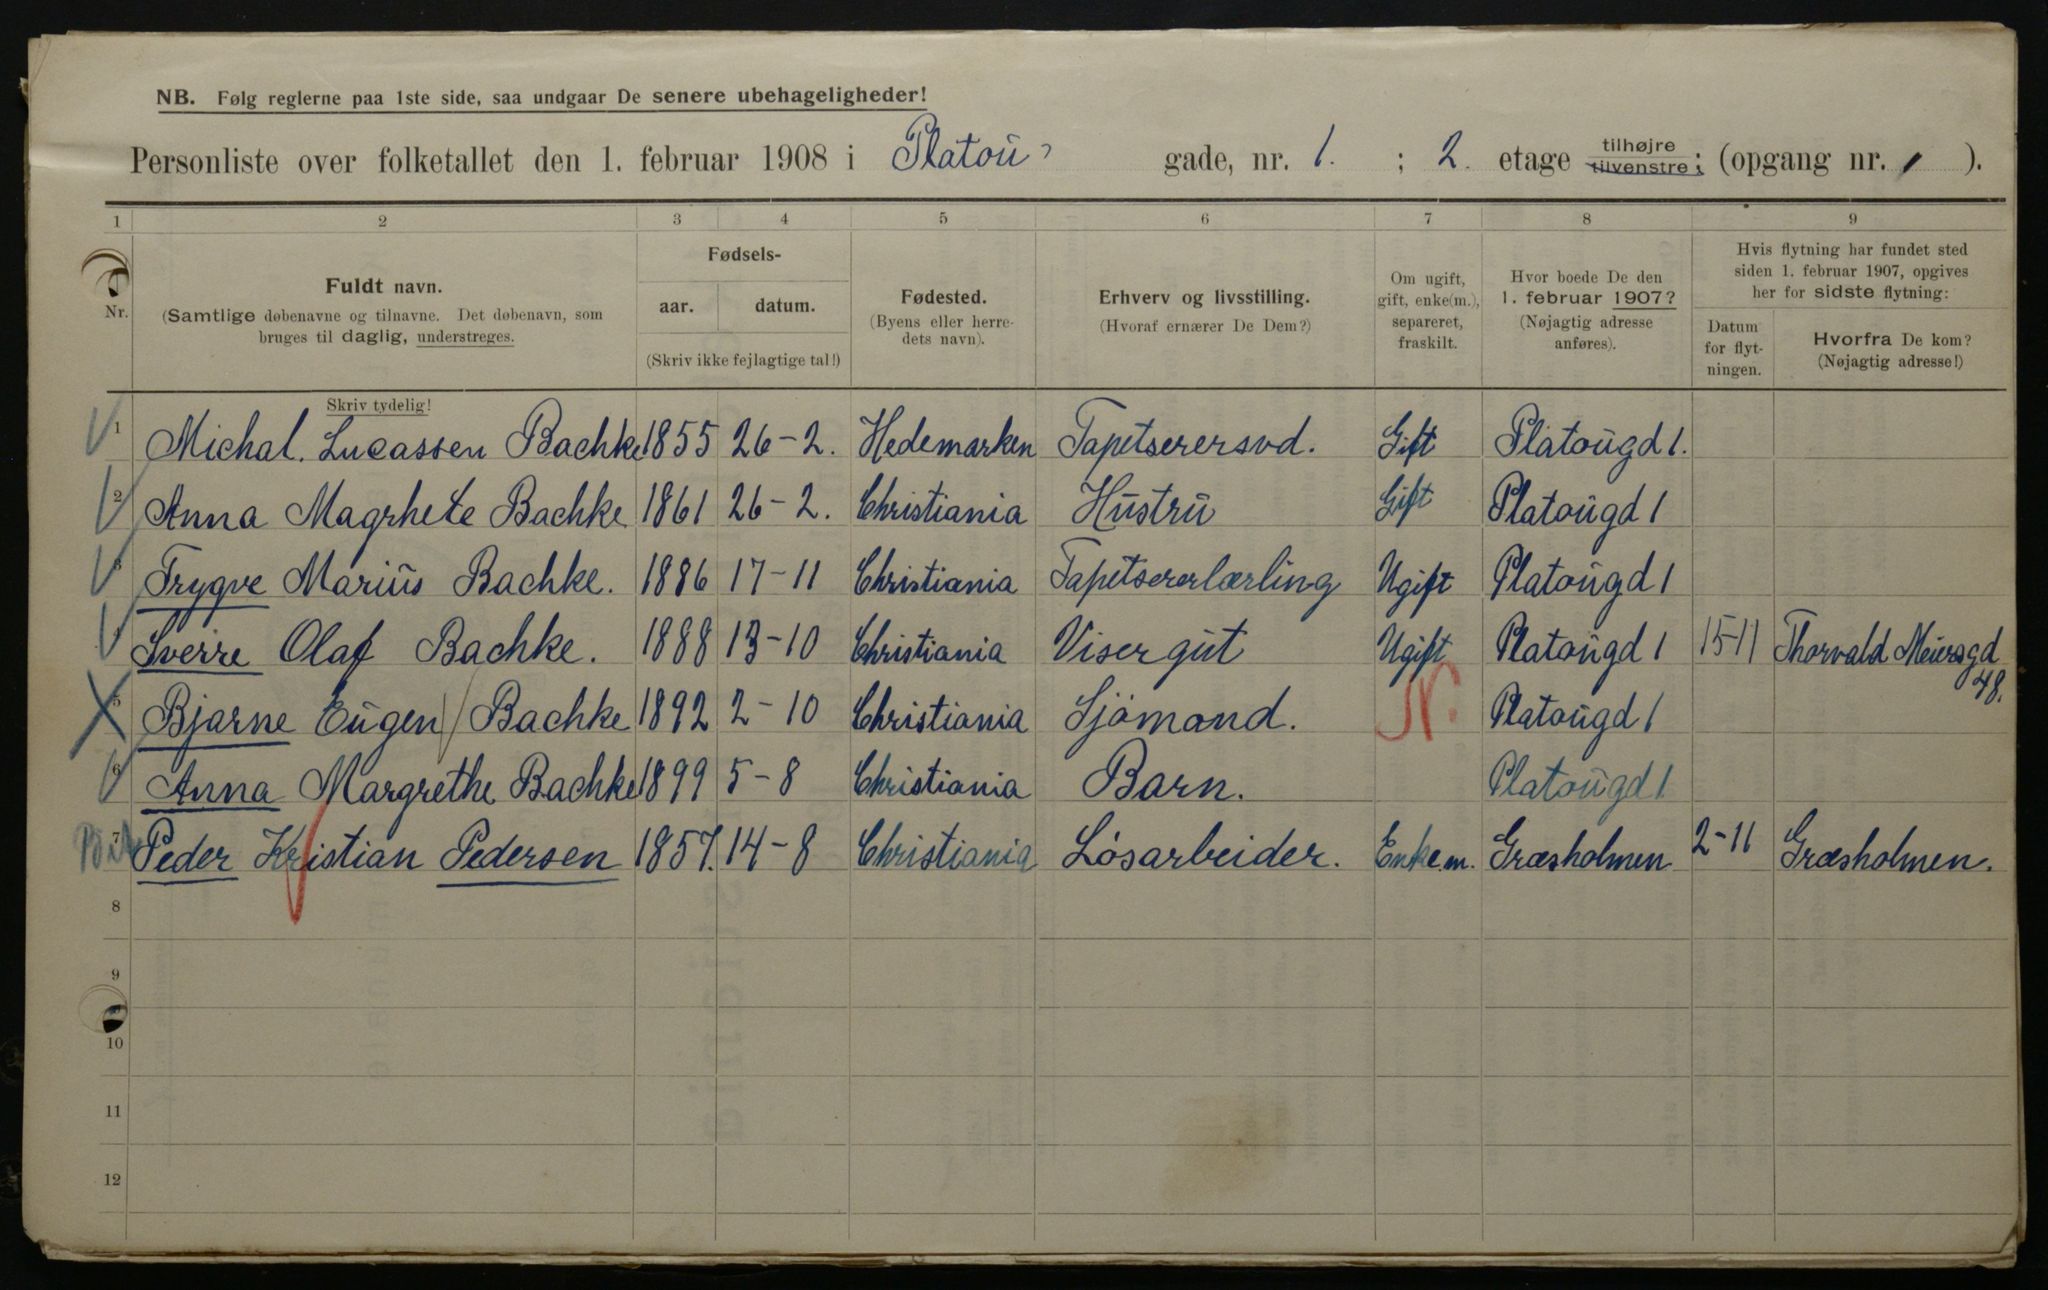 NB. Følg reglerne paa 1ste side, saa undgaar De senere ubehageligheder!
Personliste over folketallet den 1. februar 1908 i Platou gade, nr. 1. ; 2. etage tilhøjre tilvenstre; (opgang nr. 1 ).
1 2 3 4 5 6 7 8 9
Nr.
Fuldt navn.
(Samtlige døbenavne og tilnavne. Det døbenavn, som
bruges til daglig, understreges.
Fødsels-
aar. datum.
(Skriv ikke fejlagtige tal!)
Fødested.
(Byens eller herre-
dets navn).
Erhverv og livsstilling.
(Hvoraf ernærer De Dem?)
Om ugift,
gift, enke(m.),
separeret,
fraskilt.
Hvor boede De den
1. februar 1907?
(Nøjagtig adresse
anføres).
Hvis flytning har fundet sted
siden 1. februar 1907, opgives
her for sidste flytning:
Datum
for flyt-
ningen.
Hvorfra De kom?
(Nøjagtig adresse!)
Skriv tydelig!
1 Michal. Lucassen Bachke 1855 26-2. Hedemarken Tapetserersvd. Gift Platougd 1.
2 Anna Magrhete Bachke 1861 26-2. Christiania Hustru Gift Platougd 1
3 Trygve Marius Bachke. 1886 17-11 Christiania Tapetsererlærling Ugift Platougd 1
4 Sverre Olaf Bachke. 1888 13-10 Christiania Visergut Ugift Platougd 1 15-11 Thorvald Meiersgd
48.
5 Bjarne Eugen / Bachke 1892 2-10 Christiania Sjömand. N. Platougd 1
6 Anna Margrethe Bachke 1899 5-8 Christiania Barn. Platougd 1
7 Peder Kristian Pedersen 1857. 14-8 Christiania Lösarbeider. Enkem. Græsholmen 2-11 Græsholmen.
8
9
10
11
12